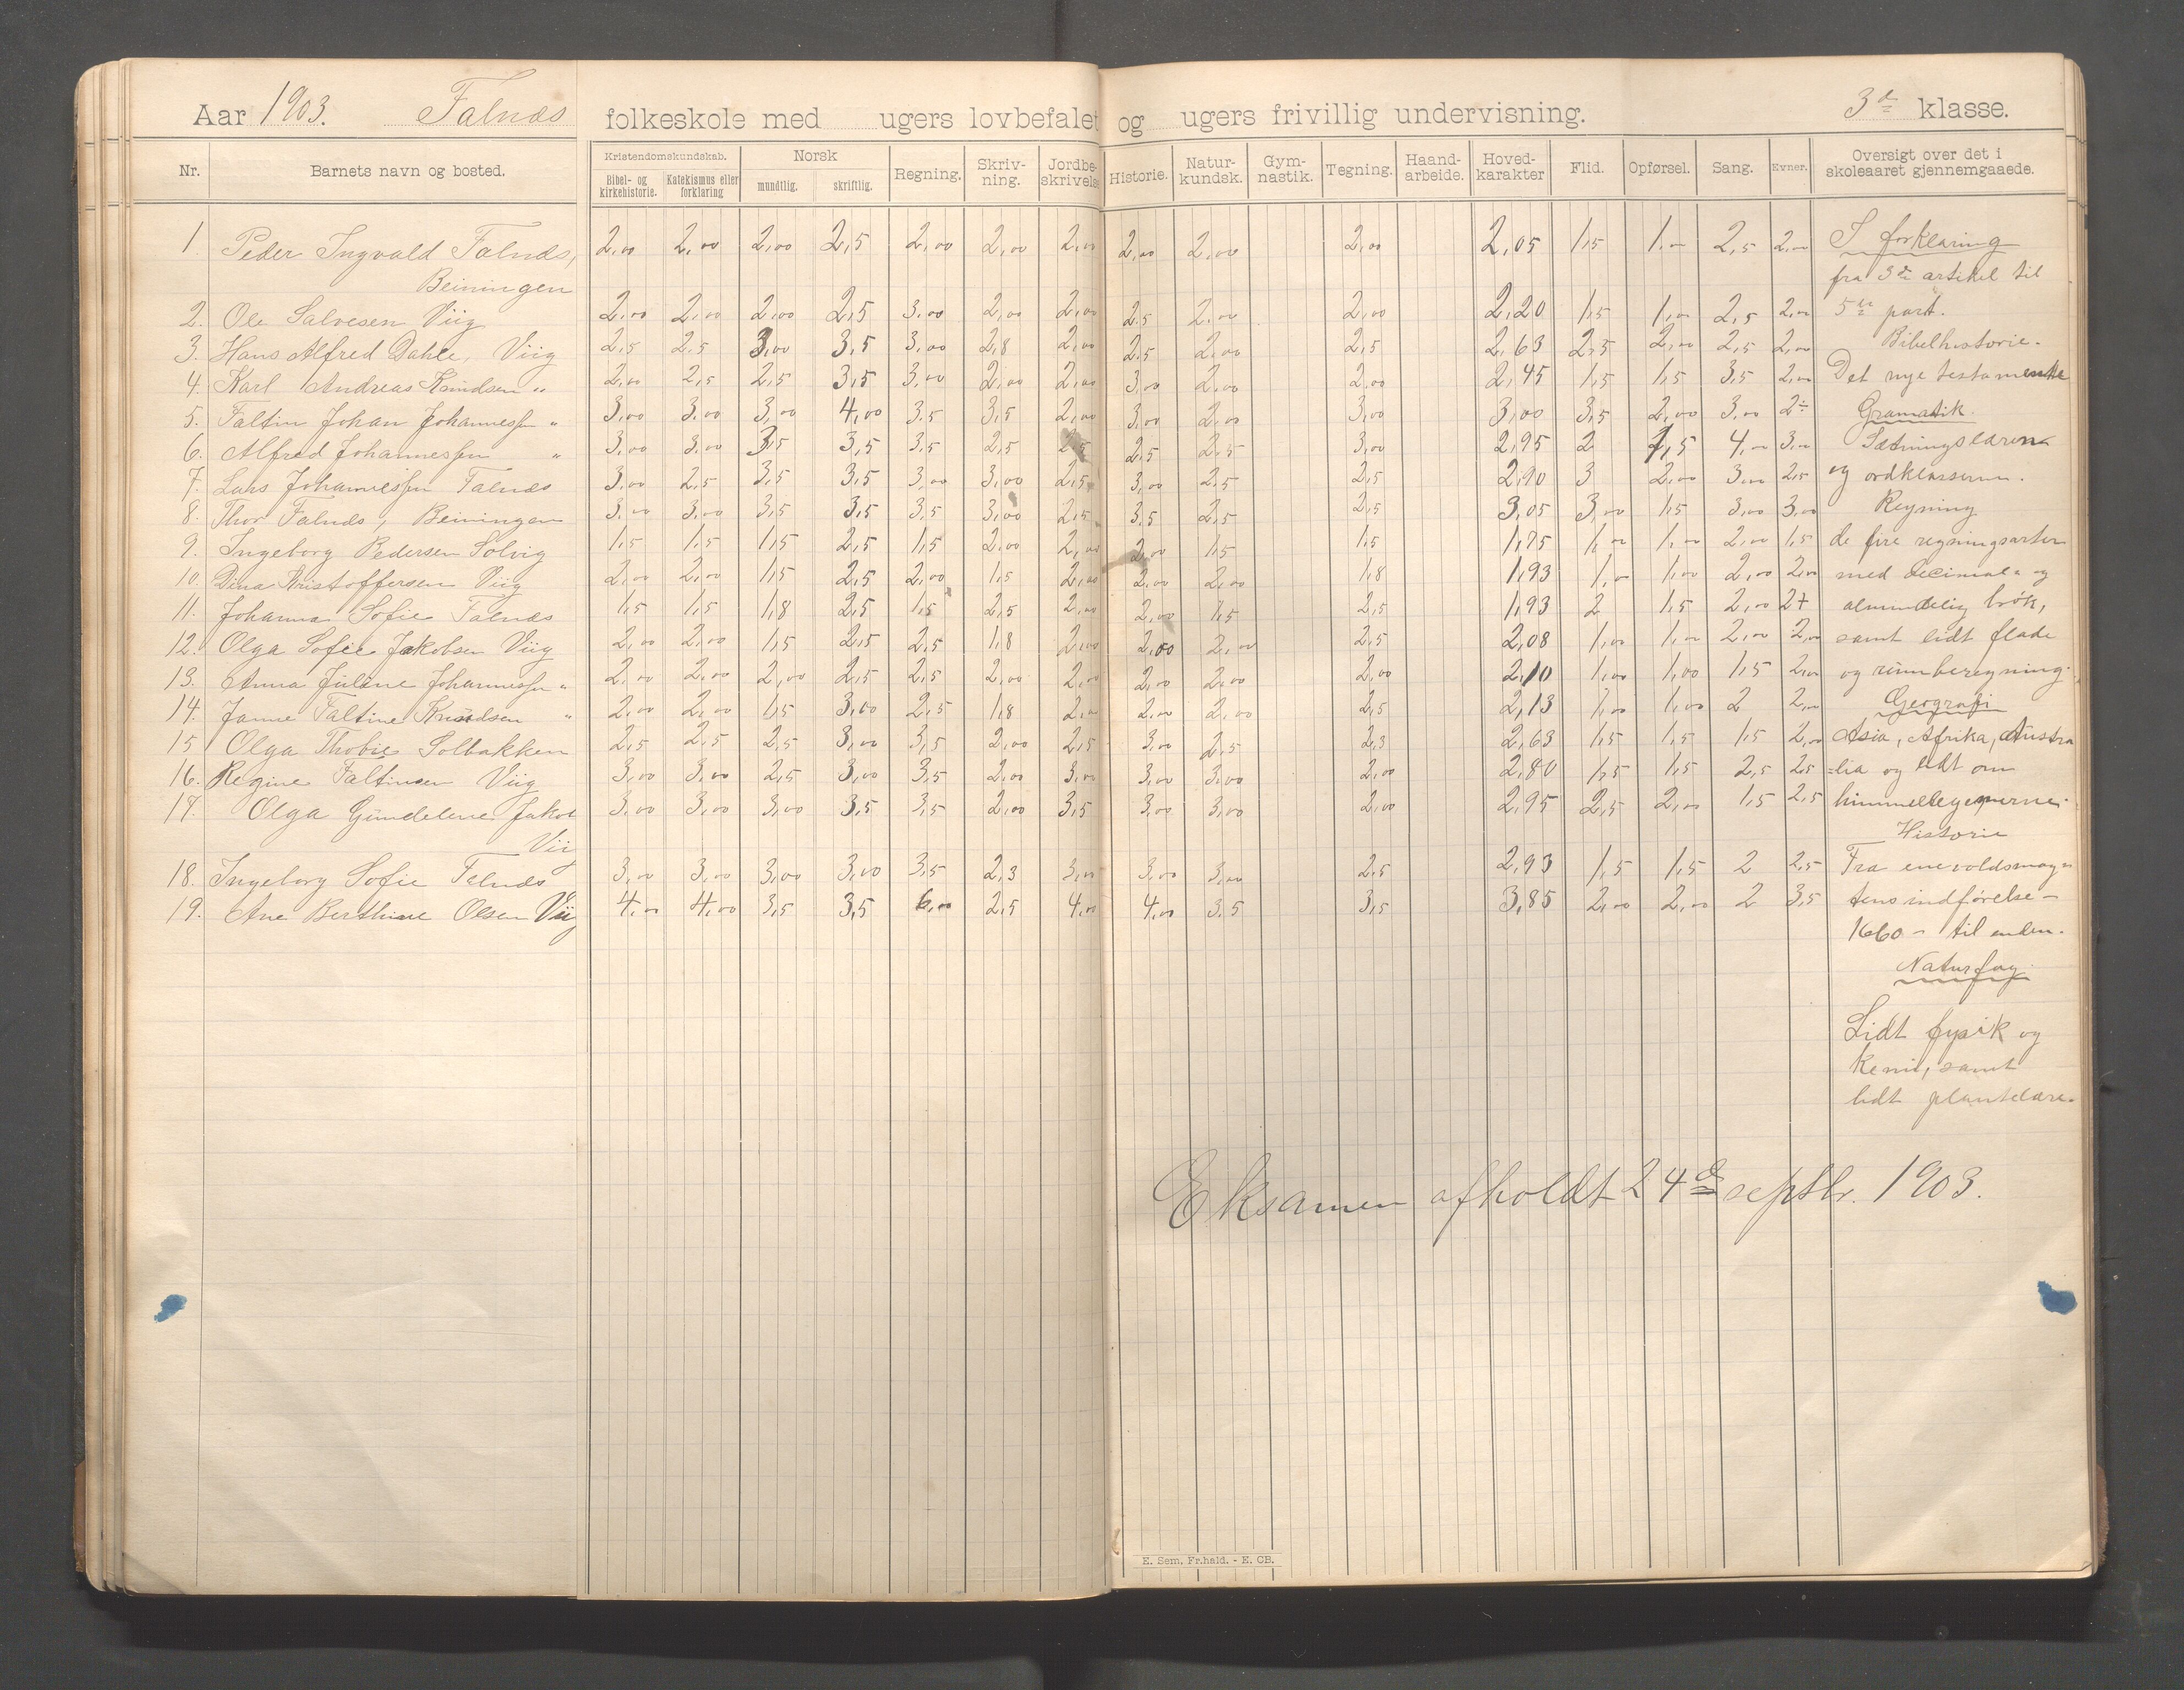 Aar 1903. Falnæs folkeskole med ugers lovbefalet og ugers frivillig undervisning. 3de klasse.
Nr. Barnets navn og bosted. Kristendomskundskab. Bibel- og kirkehistorie. Katekismus eller forklaring Norsk mundtlig. skriftlig. Regning. Skriv-ning. Jordbe-skrivelse Historie. Natur-kundsk. Gym-nastik. Tegning. Haand-arbeide. Hoved-karakter Flid. Opførsel. Sang. Evner. Oversigt over det i skoleaaret gjennemgaaede.
1. Peder Ingvald Falnæs, 2,00 2,00 2,00 2,5 2,00 2,00 2,00 2,00 2,00 2,00 2,05 1,5 1,00 2,5 2,00 I forklaring
Beiningen fra 3de artikel til
2. Ole Salvesen Viig 2,00 2,00 2,00 2,5 3,00 2,00 2,00 2,5 2,00 2,00 2,20 1,5 1,00 2,5 2,00 5te part.
3. Hans Alfred Dahle, Viig 2,5 2,5 3,00 3,5 3,00 2,8 2,00 2,5 2,00 2,5 2,63 2,5 2,00 2,5 2,00 Bibelhistorie.
4. Karl Andreas Knudsen " 2,00 2,5 2,5 3,5 3,00 2,00 2,00 3,00 2,00 2,00 2,45 1,5 1,5 3,5 2,00 Det nye testamente
5. Faltin Johan Johannessen " 3,00 3,00 3,00 4,00 3,5 3,5 2,00 3,00 2,00 3,00 3,00 3,5 2,00 3,00 2÷ Gramatik.
6. Alfred Johannessen " 3,00 3,00 3,5 3,5 3,5 2,5 2,5 2,5 2,5 3,00 2,95 2 1,5 4,00 3,00 Sætningslæren
7. Lars Johannessen Falnæs 3,00 2,5 3,5 3,5 3,00 3,00 2,5 3,00 2,5 2,5 2,90 3 2,00 3,00 2,5 og ordklasserne.
8. Thor Falnæs, Beiningen 3,00 3,00 3,5 3,5 3,5 3,00 2,5 3,5 2,5 2,5 3,05 3,00 1,5 3,00 3,00 Regning
9. Ingeborg Pedersen Solvig 1,5 1,5 1,5 2,5 1,5 2,00 2,00 2,00 1,5 1,5 1,75 1,00 1,00 2,00 1,5 de fire regningsarter
10. Dina Kristoffersen Viig 2,00 2,00 1,5 2,5 2,00 1,5 2,00 2,00 2,00 1,8 1,93 1,00 1,00 2,00 2,00 med decimal- og
11. Johanna Sofie Falnæs 1,5 1,5 1,8 2,5 1,5 2,5 2,00 2,00 1,5 2,5 1,93 2 1,5 2,00 2+ almindelig brøk,
12. Olga Sofie Jakobsen Viig 2,00 2,00 1,5 2,5 2,5 1,8 2,00 2,00 2,00 2,5 2,08 1,00 1,00 2,00 2,00 samt lidt flade
13. Anna Juline Johannessen " 2,00 2,00 2,00 2,5 2,5 2,00 2,00 2,00 2,00 2,00 2,10 1,00 1,00 1,5 2,00 og rumberegning.
14. Janne Faltine Knudsen " 2,00 2,00 1,5 3,00 2,5 1,8 2,00 2,00 2,00 2,5 2,13 1,00 1,00 2 2,00 Geografi
15 Olga Thobie Solbakken 2,5 2,5 2,5 3,00 3,5 2,00 2,5 3,00 2,5 2,3 2,63 1,5 1,5 1,5 2,00 Asia, Afrika, Austra
16. Regine Faltinsen Viig 3,00 3,00 2,5 3,00 3,5 2,00 3,00 3,00 3,00 2,00 2,80 1,5 1,5 2,5 2,5 =lia og lidt om
17. Olga Gundelene Jakob 3,00 3,00 3,00 3,5 3,5 2,00 3,5 3,00 3,00 2,00 2,95 2,5 2,00 1,5 2,5 himmellegemerne.
Vii Historie
18. Ingeborg Sofie Felnæs 3,00 3,00 3,00 3,00 3,5 2,3 3,00 3,00 3,00 2,5 2,93 1,5 1,5 2 2,5 Fra enevoldsmag=
19. Ane Berthine Olsen Viig 4,00 4,00 3,5 3,5 6,00 2,5 4,00 4,00 3,5 3,5 3,85 2,00 2,00 2 3,5 tens indførelse -
1660 - til enden.
Naturfag.
Lidt fysik og
kemi, samt
lidt plantelære.
Eksamen afholdt 24de septbr. 1903.
E. Sem. Fr.hald. - E. CB.